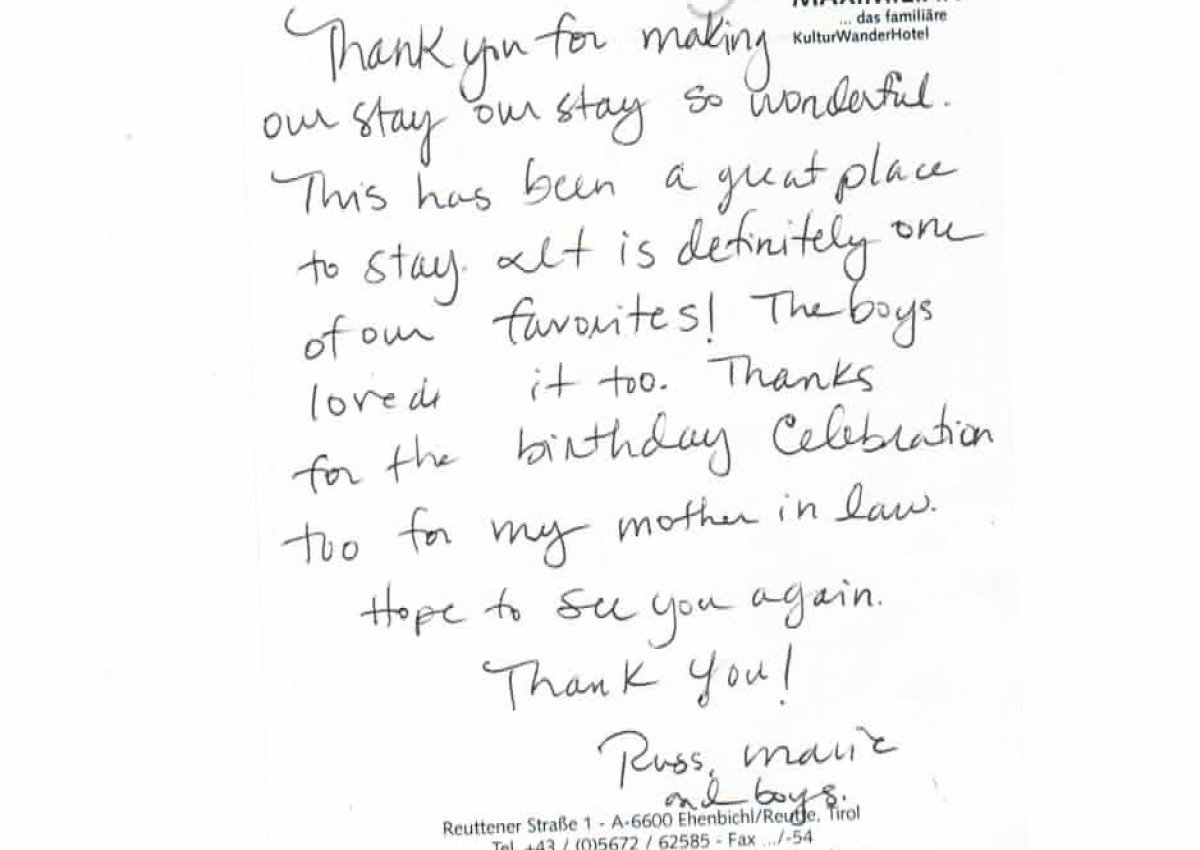 ... das familiäre
KulturWanderHotel
Thank you for making
our stay our stay so wonderful.
This has been a great place
to stay. It is definitely one
of our favorites! The boys
loved it too. Thanks
for the birthday Celebration
too for my mother in law.
Hope to see you again.
Thank You!
Russ, Marie
and boys.
Reuttener Straße 1 - A-6600 Ehenbichl/Reutte, Tirol
Tel. +43 / (0)5672 / 62585 - Fax .../-54